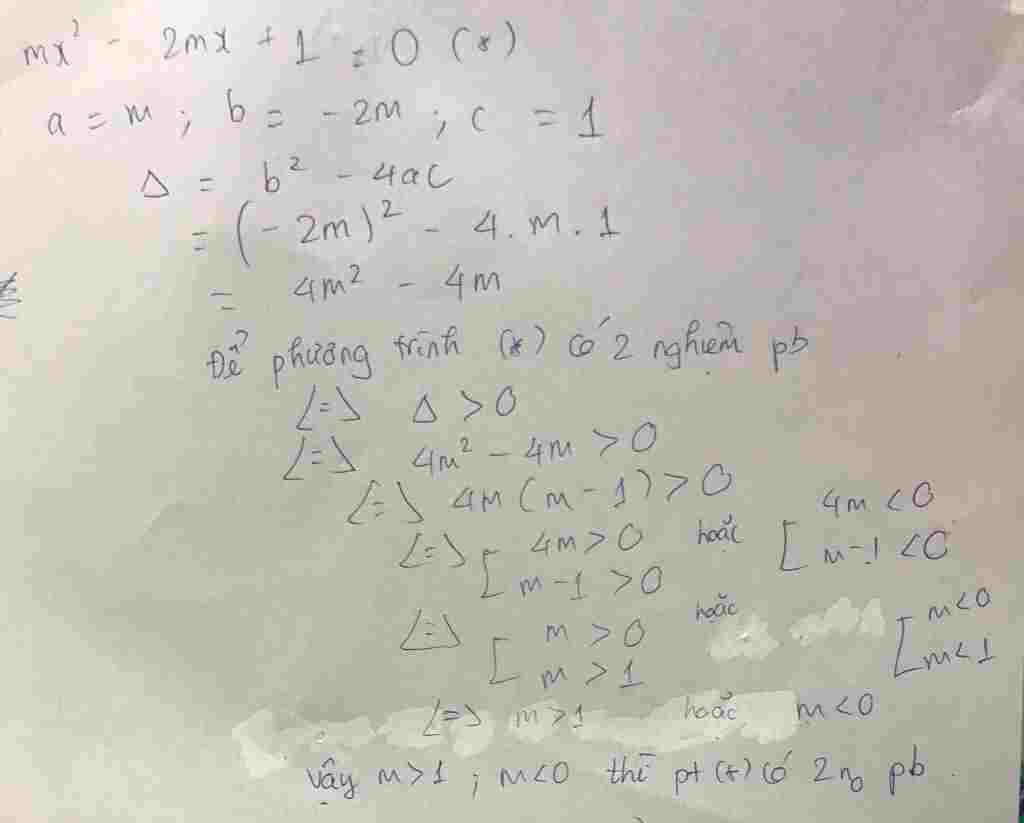 mx² - 2mx + 1 = 0 (*)
a = m ; b = -2m ; c = 1
Δ = b² - 4ac
= (-2m)² - 4.m.1
= 4m² - 4m
Để phương trình (*) có 2 nghiệm pb
<=> Δ > 0
<=> 4m² - 4m > 0
<=> 4m(m-1) > 0
<=> [ 4m > 0 hoặc [ 4m < 0
m - 1 > 0 m - 1 < 0
<=> [ m > 0 hoặc [ m < 0
m > 1 m < 1
<=> m > 1 hoặc m < 0
vậy m > 1 ; m < 0 thì pt (*) có 2 n₀ pb.